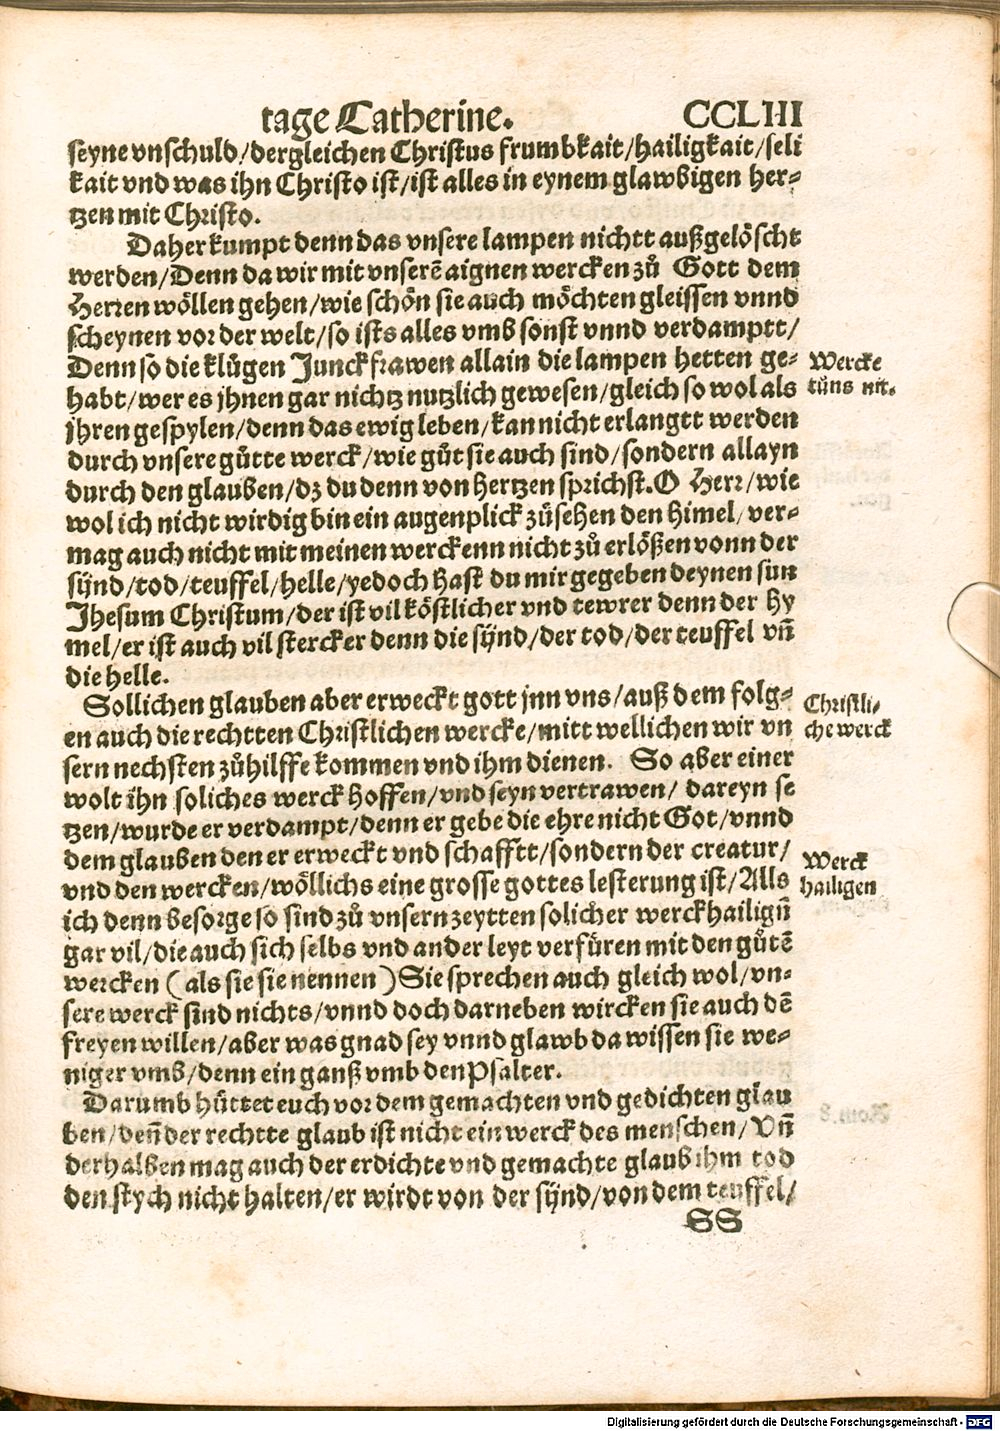 tage Catherine. CCLIII
seyne vnschuld/dergleichen Christus frumbkait/hailigkait/seli
kait vnd was ihn Christo ist/ist alles in eynem glawbigen her-
tzen mit Christo.
Daher kumpt denn das vnsere lampen nichtt außgelöscht
werden/Denn da wir mit vnserē aignen wercken zů Gott dem
Herren wöllen gehen/wie schön sie auch möchten gleissen vnnd
scheynen vor der welt/so ists alles vmb sonst vnnd verdamptt/
Denn so die klůgen Junckfrawen allain die lampen hetten ge-
habt/wer es jhnen gar nichtz nutzlich gewesen/gleich so wol als
jhren gespylen/denn das ewig leben/kan nicht erlangtt werden
durch vnsere gůtte werck/wie gůt sie auch sind/sondern allayn
durch den glauben/dz du denn von hertzen sprichst. O Herr/wie
wol ich nicht wirdig bin ein augenplick zůsehen den himel/ver-
mag auch nicht mit meinen werckenn nicht zů erlößen vonn der
sünd/tod/teuffel/helle/yedoch hast du mir gegeben deynen sun
Jhesum Christum/der ist vil köstlicher vnd tewrer denn der hy
mel/er ist auch vil stercker denn die sünd/der tod/der teuffel vñ
die helle.
Sollichen glauben aber erweckt gott jnn vns/auß dem folg-
en auch die rechtten Christlichen wercke/mitt wellichen wir vn
sern nechsten zůhilffe kommen vnd ihm dienen. So aber einer
wolt ihn soliches werck hoffen/vnd seyn vertrawen/ dareyn se
tzen/wurde er verdampt/denn er gebe die ehre nicht Got/vnnd
dem glauben den er erweckt vnd schafftt/sondern der creatur/
vnd den wercken/wöllichs eine grosse gottes lesterung ist/Alls
ich denn besorge so sind zů vnsern zeytten solicher werckhailigñ
gar vil/die auch sich selbs vnd ander leyt verfüren mit den gůtē
wercken (als sie sie nennen) Sie sprechen auch gleich wol/vn-
sere werck sind nichts/vnnd doch darneben wircken sie auch dē
freyen willen/aber was gnad sey vnnd glawb da wissen sie we-
niger vmb/denn ein ganß vmb den Psalter.
Darumb hüttet euch vor dem gemachten vnd gedichten glau
ben/deñ der rechtte glaub ist nicht ein werck des menschen/Vñ
derhalben mag auch der erdichte vnd gemachte glaub ihm tod
den stych nicht halten/er wirdt von der sünd/von dem teuffel/
SS
Wercke
tůns nit.
Christli-
che werck
Werck
hailigen
Digitalisierung gefördert durch die Deutsche Forschungsgemeinschaft - DFG